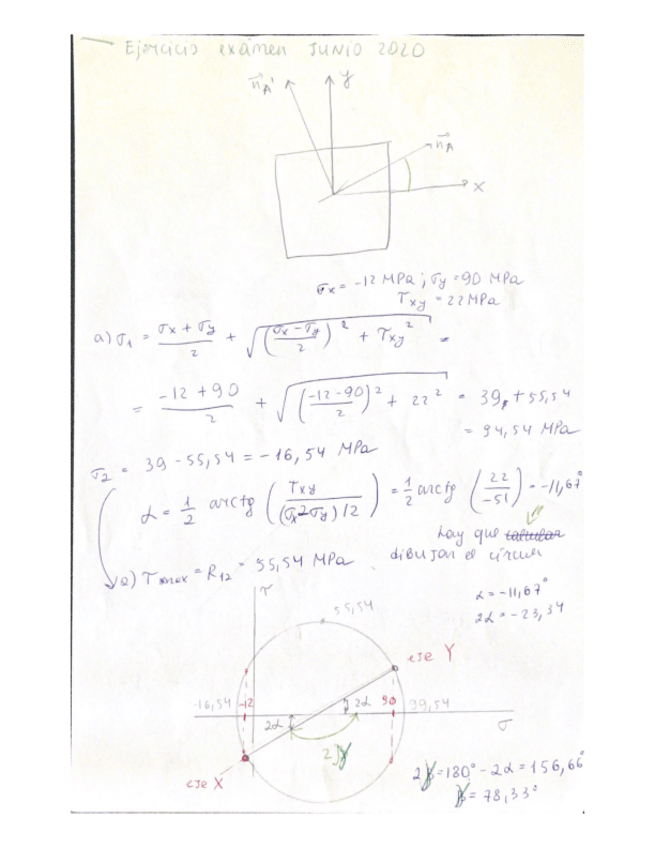 Ejercicio exámen JUNIO 2020
n⃗A' y
n⃗A
x
σx = -12 MPa ; σy = 90 MPa
τxy = 22 MPa
a) σ1 = (σx + σy)/2 + √(((σx - σy)/2)² + τxy²) =
= (-12 + 90)/2 + √(((-12 - 90)/2)² + 22²) = 39 + 55,54
= 94,54 MPa
σ2 = 39 - 55,54 = -16,54 MPa
α = 1/2 arctg (τxy/((σx - σy)/2)) = 1/2 arctg (22/-51) = -11,67°
hay que calcular
dibujar el círculo
a) τmax = R12 = 55,54 MPa
α = -11,67°
2α = -23,34
τ
55,54
eje Y
-16,54 -12 2α 90 99,54
2α σ
2γ
eje X
2γ = 180° - 2α = 156,66°
γ = 78,33°